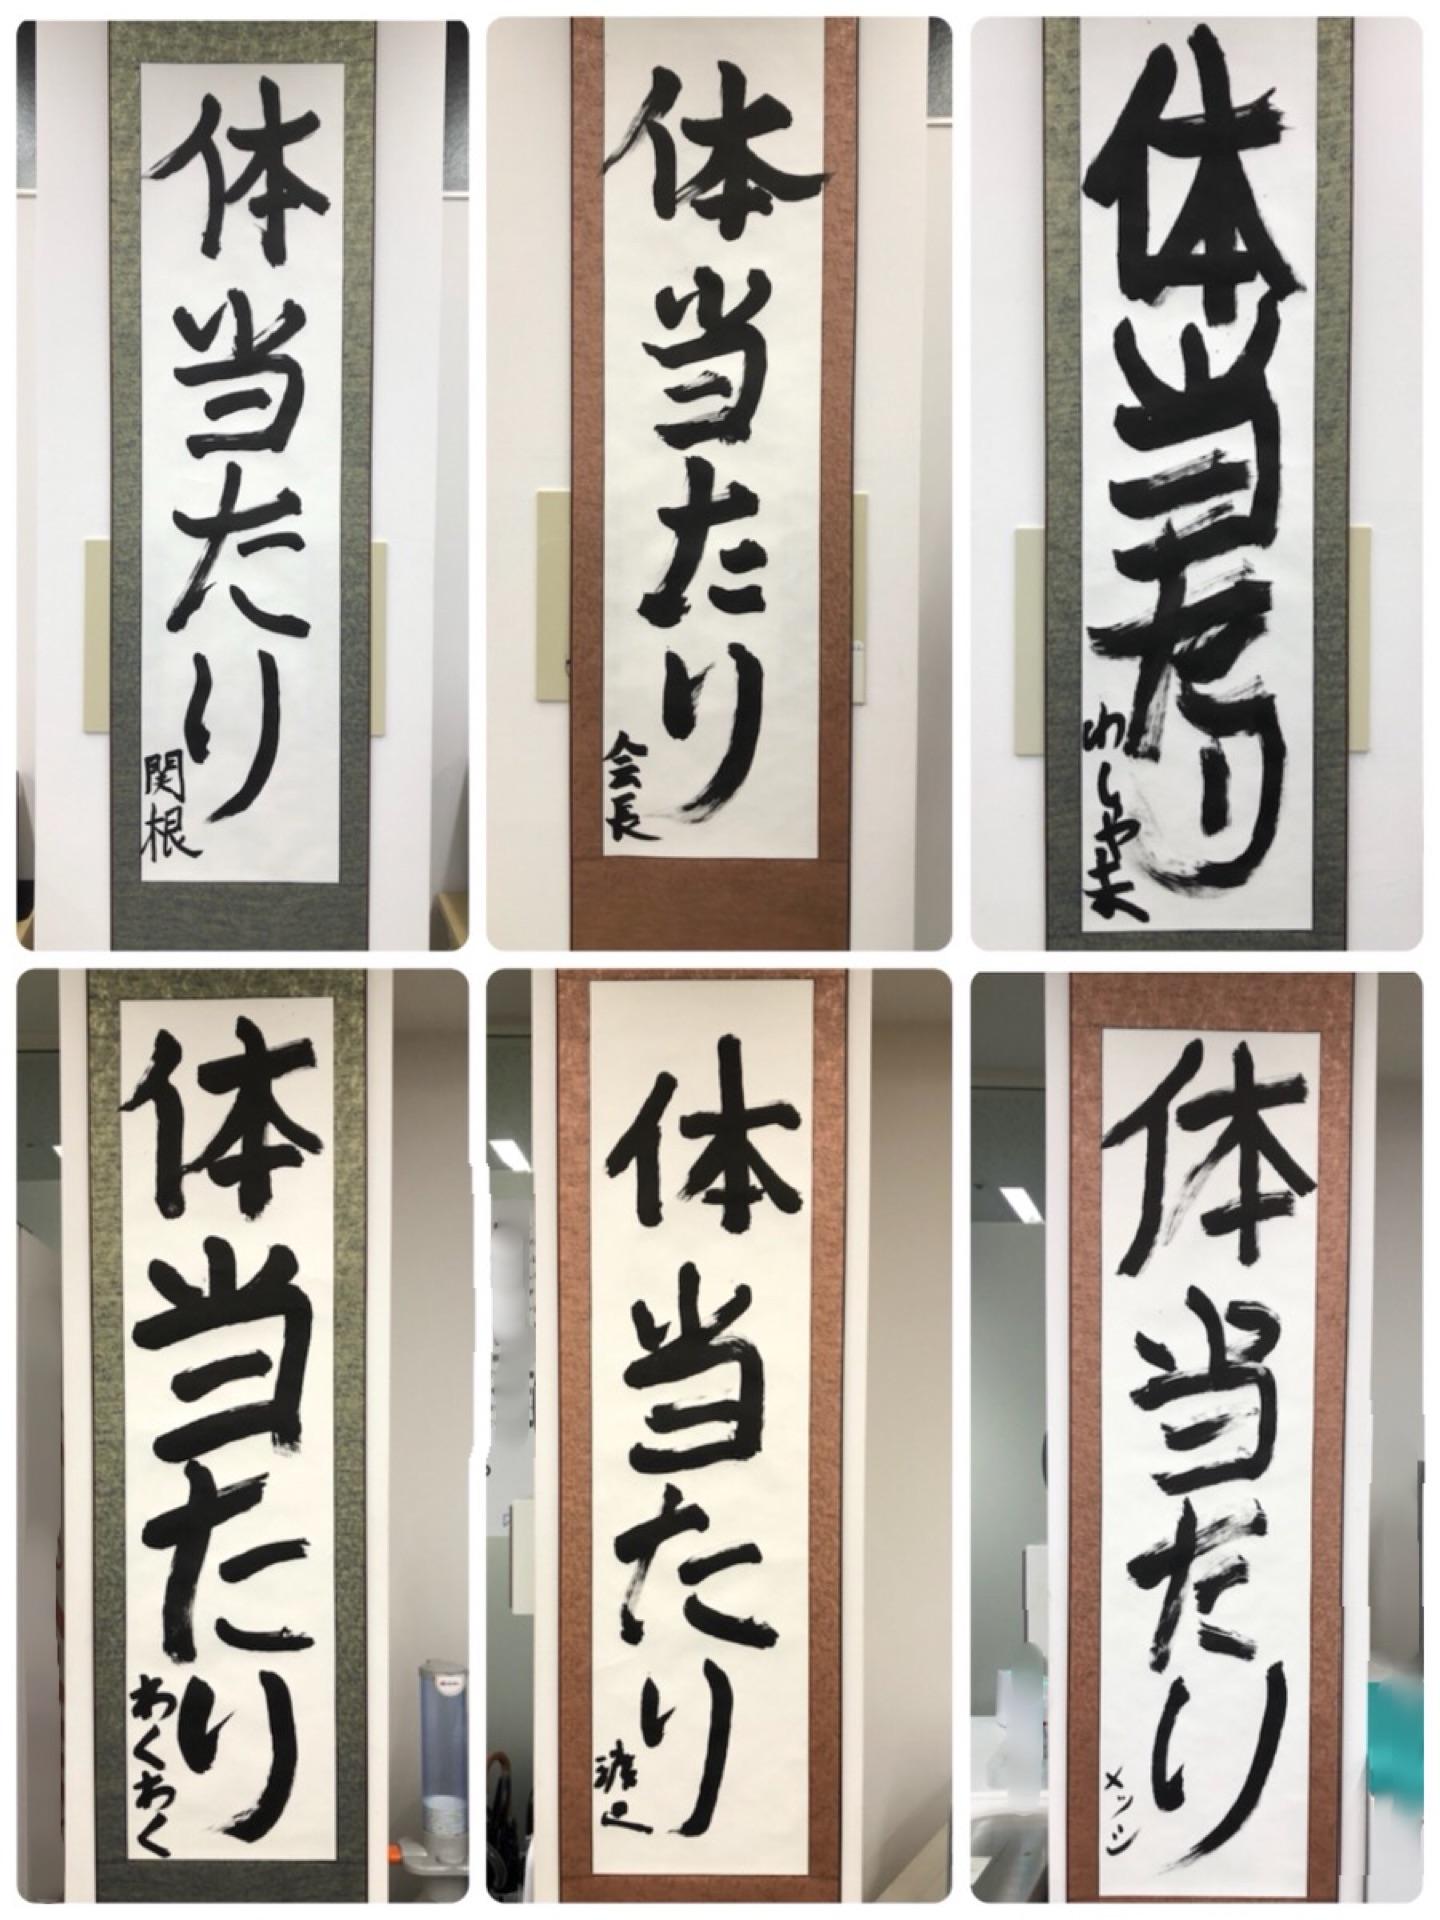 体当たり
関根
体当たり
会長
体当たり
体当たり
わくわく
体当たり
体当たり
メッシ